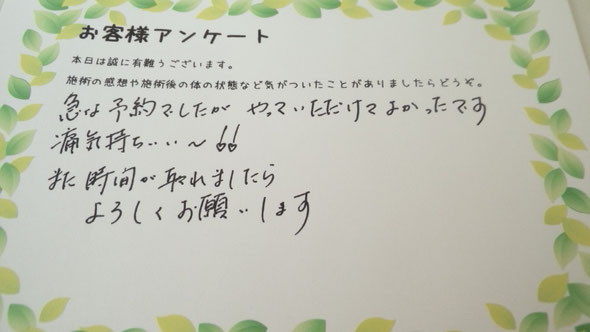 お客様アンケート
本日は誠に有難うございます。
施術の感想や施術後の体の状態など気がついたことがありましたらどうぞ。
急な予約でしたが やっていただけてよかったです
痛気持ちいい～!!
また時間が取れましたら
よろしくお願いします